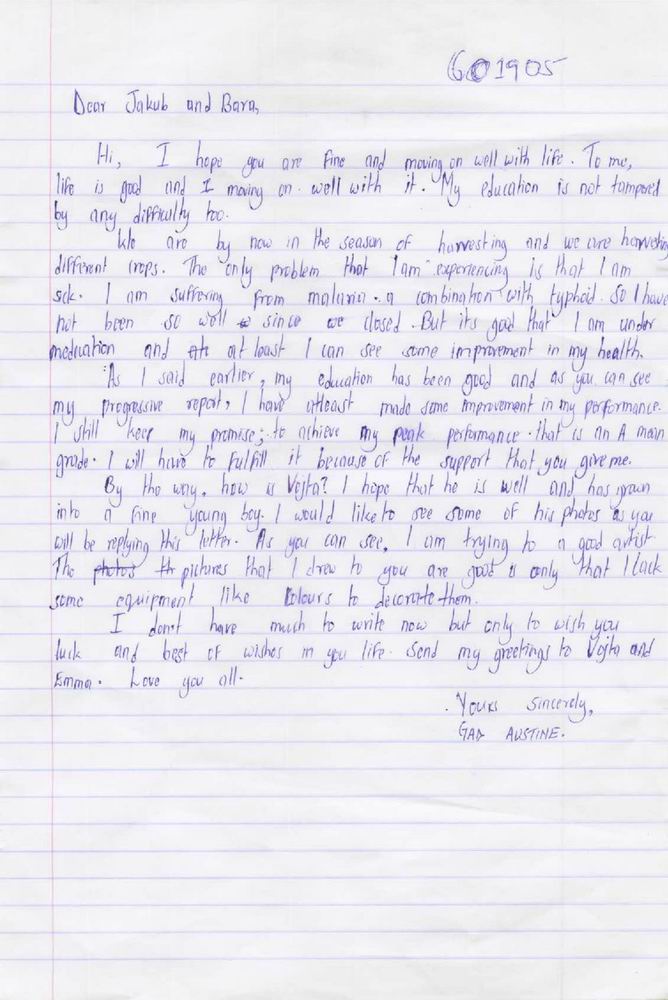 601905
Dear Jakub and Bara,
Hi, I hope you are fine and moving on well with life. To me,
life is good and I moving on well with it. My education is not tampered
by any difficulty too.
We are by now in the season of harvesting and we are harvesting
different crops. The only problem that I am experiencing is that I am
sick. I am suffering from malaria. a combination with typhoid. So I have
not been so well since we closed. But its good that I am under
medication and at least I can see some improvement in my health.
As I said earlier, my education has been good and as you can see
my progressive report, I have atleast made some improvement in my performance.
I still keep my promise; to achieve my peak performance. that is an A mean
grade. I will have to fulfill it because of the support that you give me.
By the way, how is Vojta? I hope that he is well and has grown
into a fine young boy. I would like to see some of his photos as you
will be replying this letter. As you can see, I am trying to a good artist.
The photos pictures that I drew to you are good is only that I lack
some equipment like colours to decorate them.
I don't have much to write now but only to wish you
luck and best of wishes in you life. Send my greetings to Vojta and
Emma. Love you all.
Yours sincerely,
GAD AUSTINE.